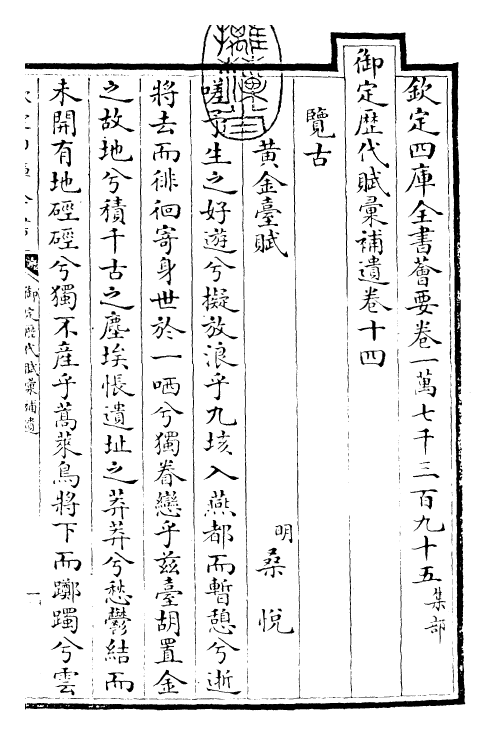 欽定四庫全書薈要卷一萬七千三百九十五集部
御定歷代賦彙補遺卷十四
覽古
黃金臺賦
明 桑悅
嗟予生之好遊兮擬放浪乎九垓入燕都而暫憩兮逝
將去而徘徊寄身世於一哂兮獨眷戀乎茲臺胡置金
之故地兮積千古之塵埃悵遺址之莽莽兮愁鬱結而
未開有地硜硜兮獨不產乎蒿萊鳥將下而躑躅兮雲
御定歷代賦彙補遺
一